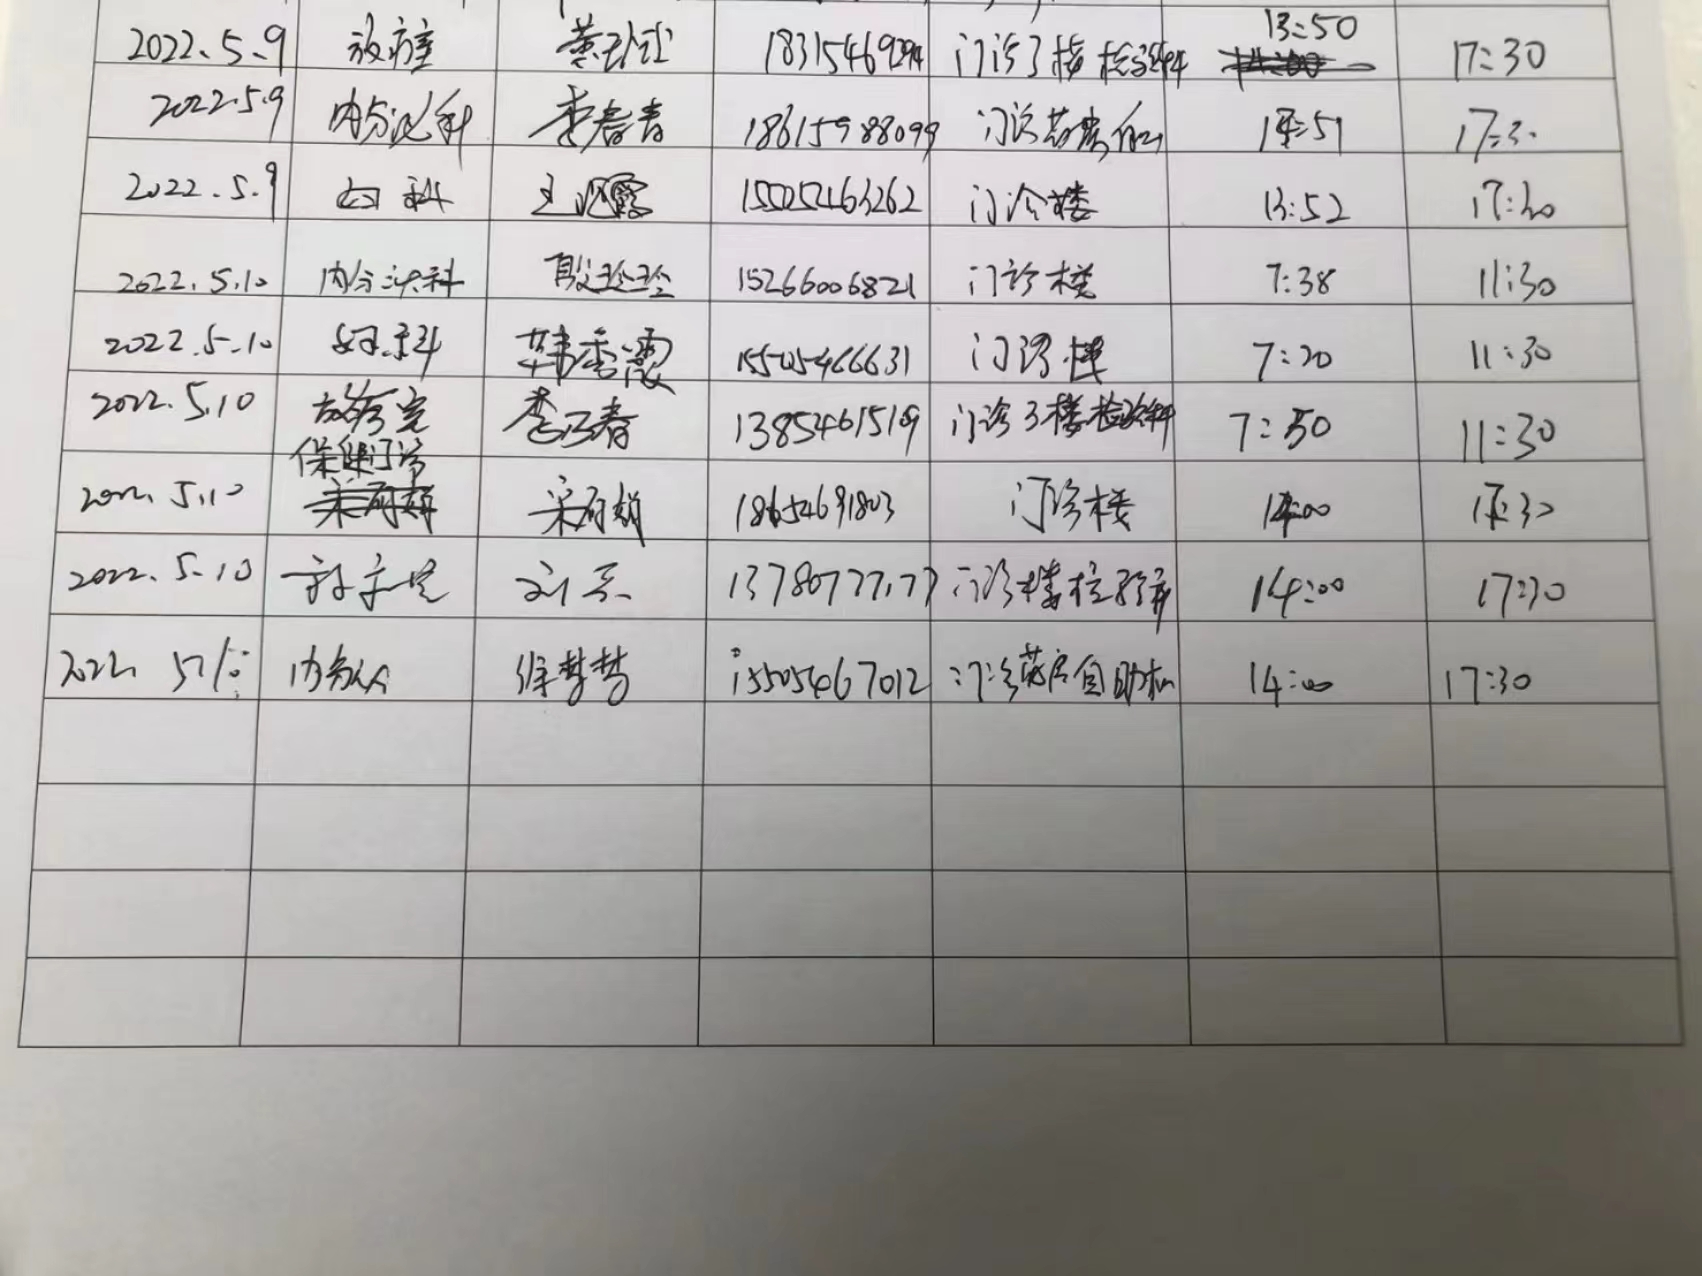 2022.5.9 放疗室 18315469294 门诊3楼检验科 13:50 17:30
2022.5.9 内分泌科 李春青 18615988099 门诊药房 14:51 17:30
2022.5.9 内科 王 15505463262 门诊楼 13:52 17:30
2022.5.10 内分泌科 殷玲玲 15266006821 门诊楼 7:38 11:30
2022.5.10 妇科 韩秀霞 15505466631 门诊楼 7:20 11:30
2022.5.10 放疗室 李乃春 13854615109 门诊3楼检验科 7:50 11:30
保健门诊
2022.5.10 宋丽娟 18654691803 门诊楼 14:00 17:30
2022.5.10 13780777177 门诊楼检验科 14:00 17:30
2022.5.10 内分泌 徐梦梦 15505467012 门诊药房自助机 14:00 17:30